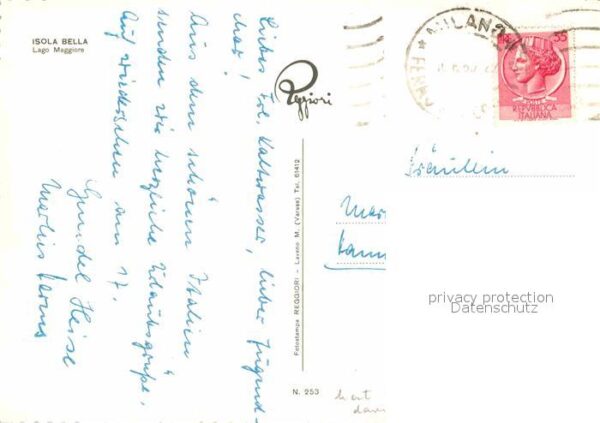 ISOLA BELLA
Lago Maggiore
Liebes Frl. Kaltwasser, lieber Jugend-
chor!
Aus dem schönen Italien
senden wir herzliche Urlaubsgrüße.
Auf Wiedersehen am 17.
Gundel Heise
Reggiori
Fotostampa REGGIORI - Laveno M. (Varese) Tel. 61412
N. 253
MILANO
35
REPVBBLICA
ITALIANA
Fräulein
privacy protection
Datenschutz